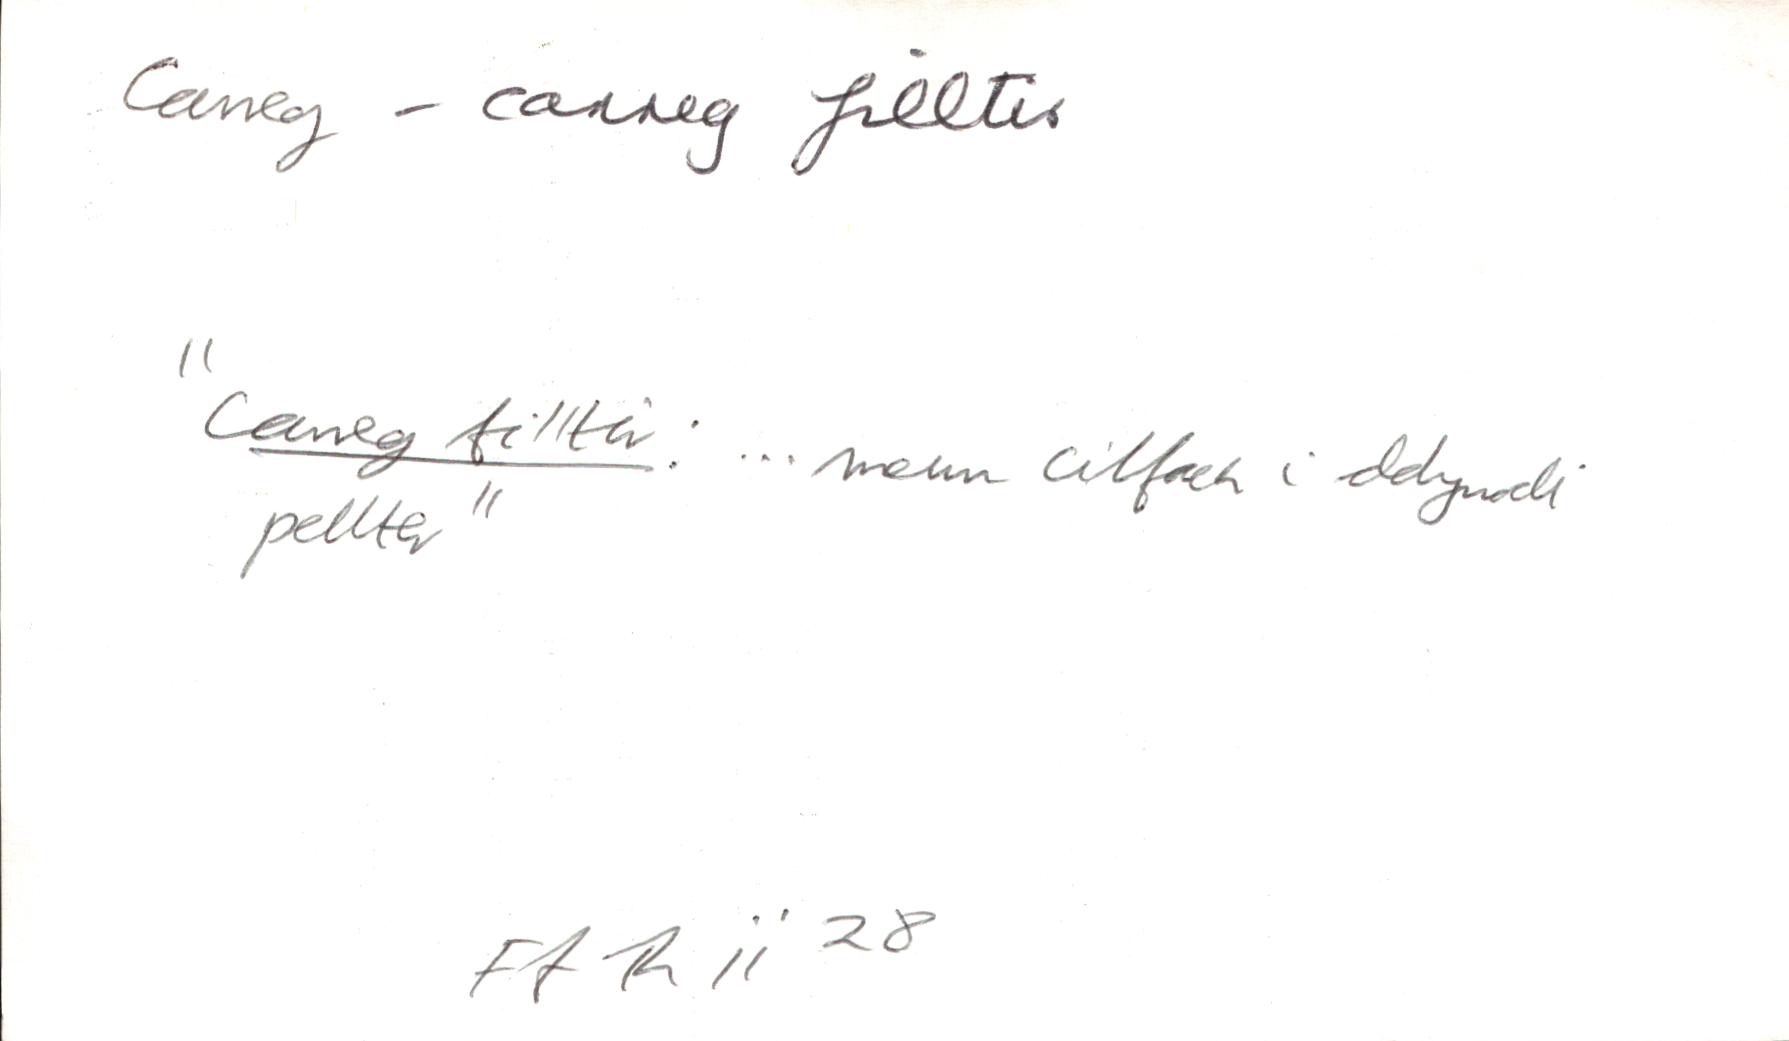 Carreg - carreg filltir
"Carreg filltir: ... mewn cilfach i ddynodi
pellter"
Ff Rh ii 28